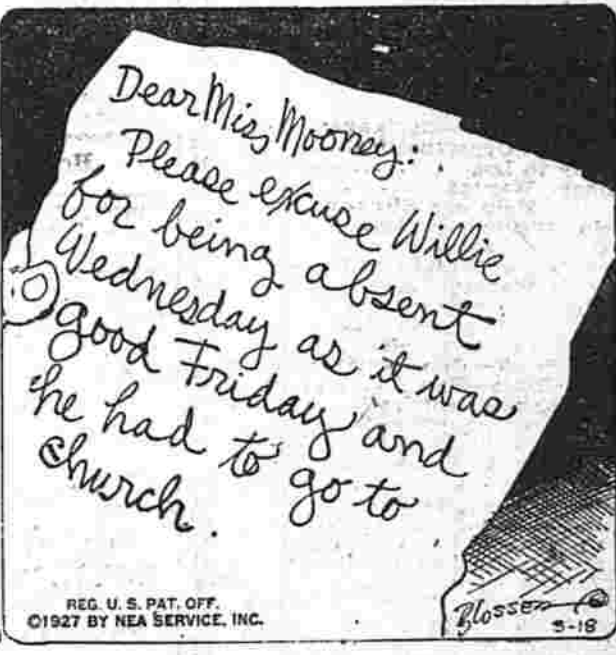 Dear Miss Mooney:
Please excuse Willie
for being absent
Wednesday as it was
good Friday and
he had to go to
church.
REG. U. S. PAT. OFF.
©1927 BY NEA SERVICE, INC.
Blosser
5-18